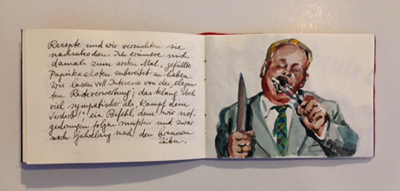 Rezepte und wie vermachten sie
nachzukochen. Ich erinnere mich,
damals zum ersten Mal, gefüllte
Paprikaschoten zubereitet zu haben.
Wir lasen voll Interesse von der eleganten
Resteverwertung; das klang
viel sympathischer als, Kampf dem
Verderb!" ein Befehl dem wir
folgen mußten und zwar
noch jahrelang nach den braunen
Zeiten.